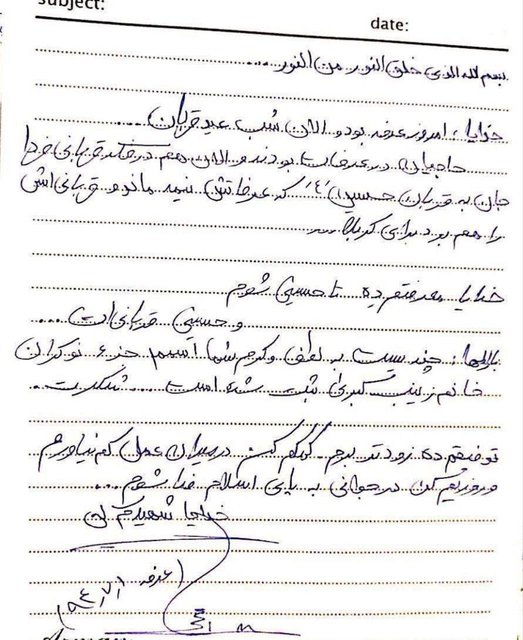 subject:
date:
بسم الله الذی خلق النور من النور ....
خدایا ، امروز عرفه بود و الان شب عید قربان ....
حاجیان در عرفات بودند و الان هم در فکر قربانی فردا
جان به قربان حسین (ع) که عرفاتش نیمه ماند و قربانی اش
را هم برد برای کربلا ....
خدایا معرفتم ده تا حسینی شوم
و حسینی قربانی ات ....
بارالها ، چندیست به لطف و کرم شما اسمم جزء نوکران
خانم زینب کبری ثبت شده است ... شکرت ..
توفیقم ده زودتر برم کمکم کن در میدان عمل کم نیاورم
و روزیم کن در جوانی به پای اسلام فدا شوم ....
خدایا شهیدم کن
(عرفه ۹۴٫۷٫۱)